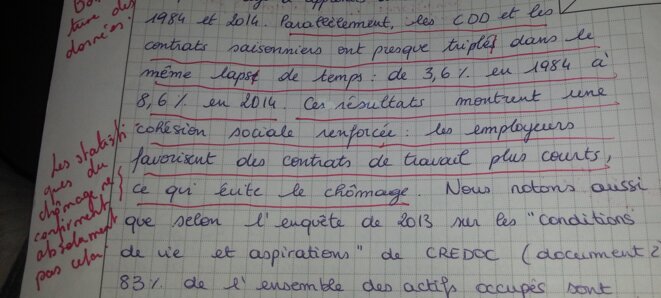 1984 et 2014. Parallèlement, les CDD et les
contrats saisonniers ont presque triplés dans le
même laps de temps : de 3,6% en 1984 à
8,6% en 2014. Ces résultats montrent une
cohésion sociale renforcée : les employeurs
favorisent des contrats de travail plus courts,
ce qui évite le chômage. Nous notons aussi
que selon l'enquête de 2013 sur les "conditions
de vie et aspirations" de CREDOC (document 2
83% de l'ensemble des actifs occupés sont
ture des
données.
Les statisti
ques du
chômage ne
confirment
absolument
pas cela!